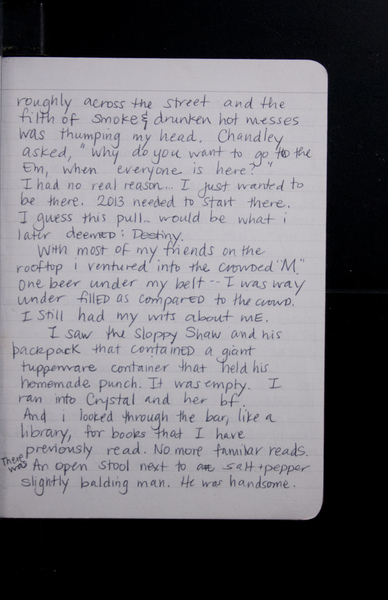 roughly across the street and the
filth of smoke & drunken hot messes
was thumping my head. Chandley
asked, "why do you want to go to the
Em, when everyone is here?"
I had no real reason... I just wanted to
be there. 2013 needed to start there.
I guess this pull.. would be what i
later deemed: Destiny.
With most of my friends on the
rooftop i ventured into the crowded "M."
One beer under my belt -- I was way
under fillED as compared to the crowd.
I still had my wits about me.
I saw the Sloppy Shaw and his
backpack that contained a giant
tupperware container that held his
homemade punch. It was empty. I
ran into Crystal and her bf.
And i looked through the bar, like a
library, for books that I have
previously read. No more familiar reads.
There was An open stool next to a salt + pepper
slightly balding man. He was handsome.